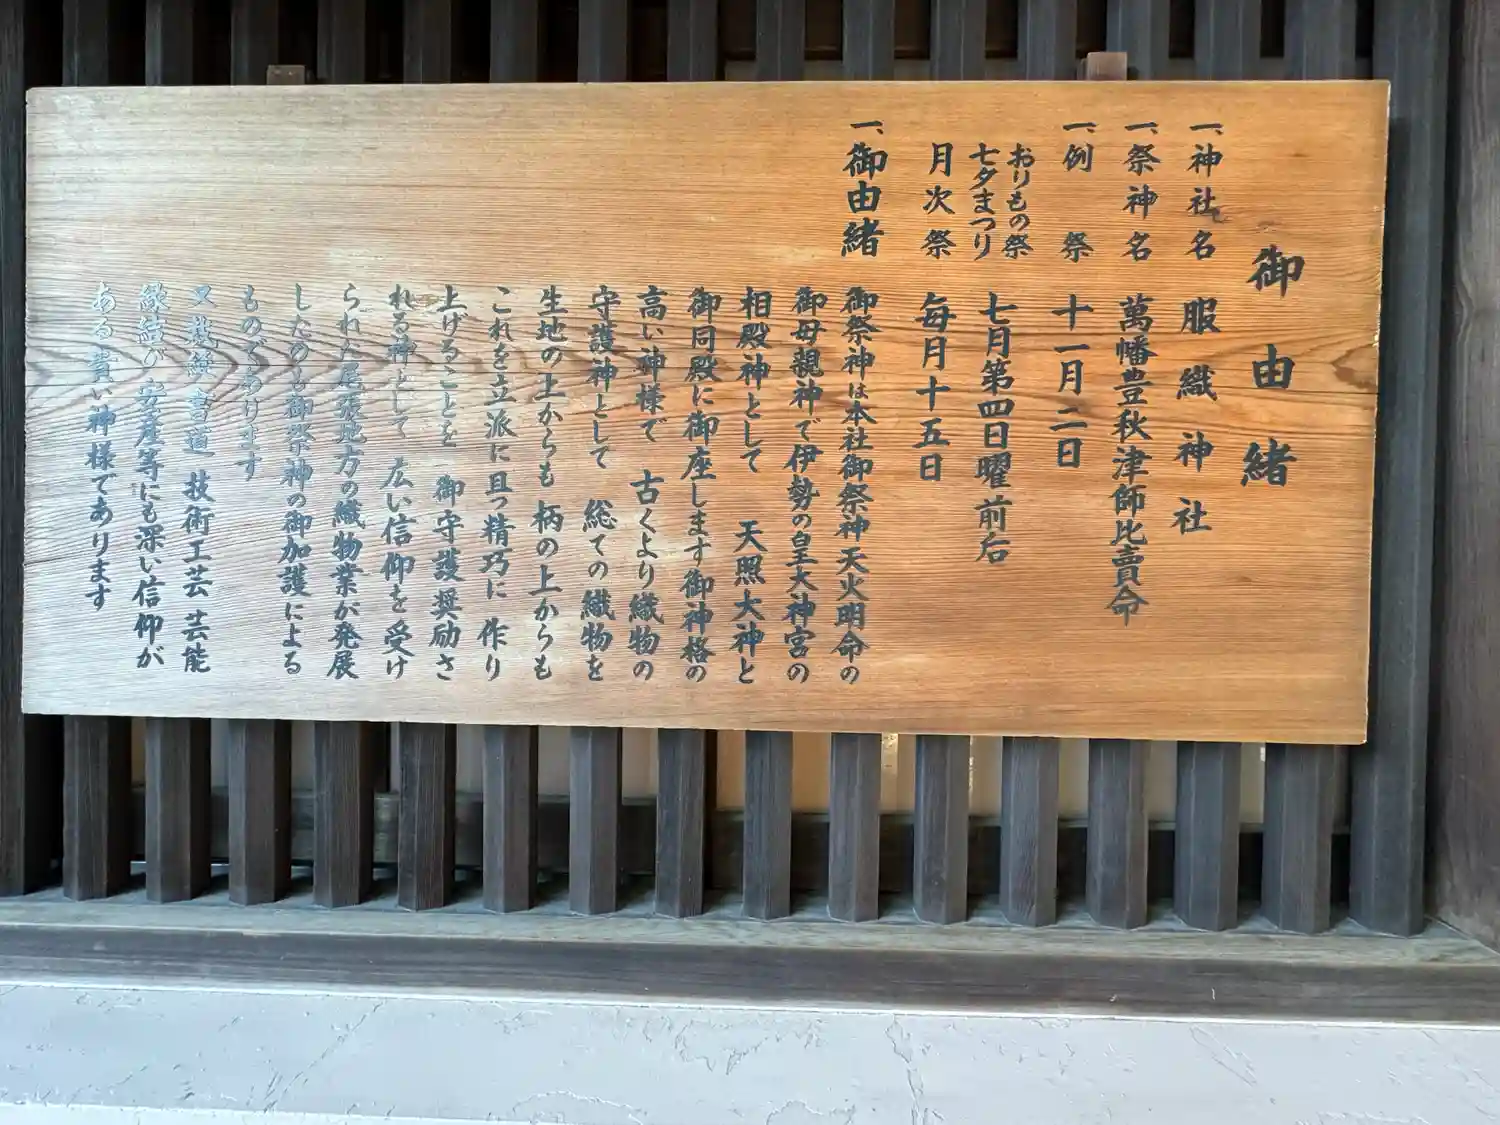 御由緒
一、神社名 服織神社
一、祭神名 萬幡豊秋津師比賣命
一、例祭 十一月二日
おりもの祭
七夕まつり 七月第四日曜前后
月次祭 毎月十五日
一、御由緒
御祭神は本社御祭神天火明命の
御母親神で伊勢の皇大神宮の
相殿神として 天照大神と
御同殿に御座します御神格の
高い神様で 古くより織物の
守護神として 総ての織物を
生地の上からも 柄の上からも
これを立派に 且つ精巧に 作り
上げることを 御守護奨励さ
れる神として 広い信仰を受け
られた尾張地方の織物業が発展
したのも御祭神の御加護による
ものであります
又裁縫 書道 技術工芸 芸能
縁結び 安産等にも深い信仰が
ある貴い神様であります